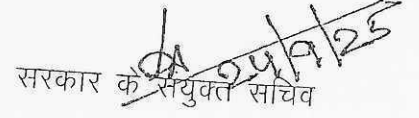 24/9/25
सरकार के संयुक्त सचिव